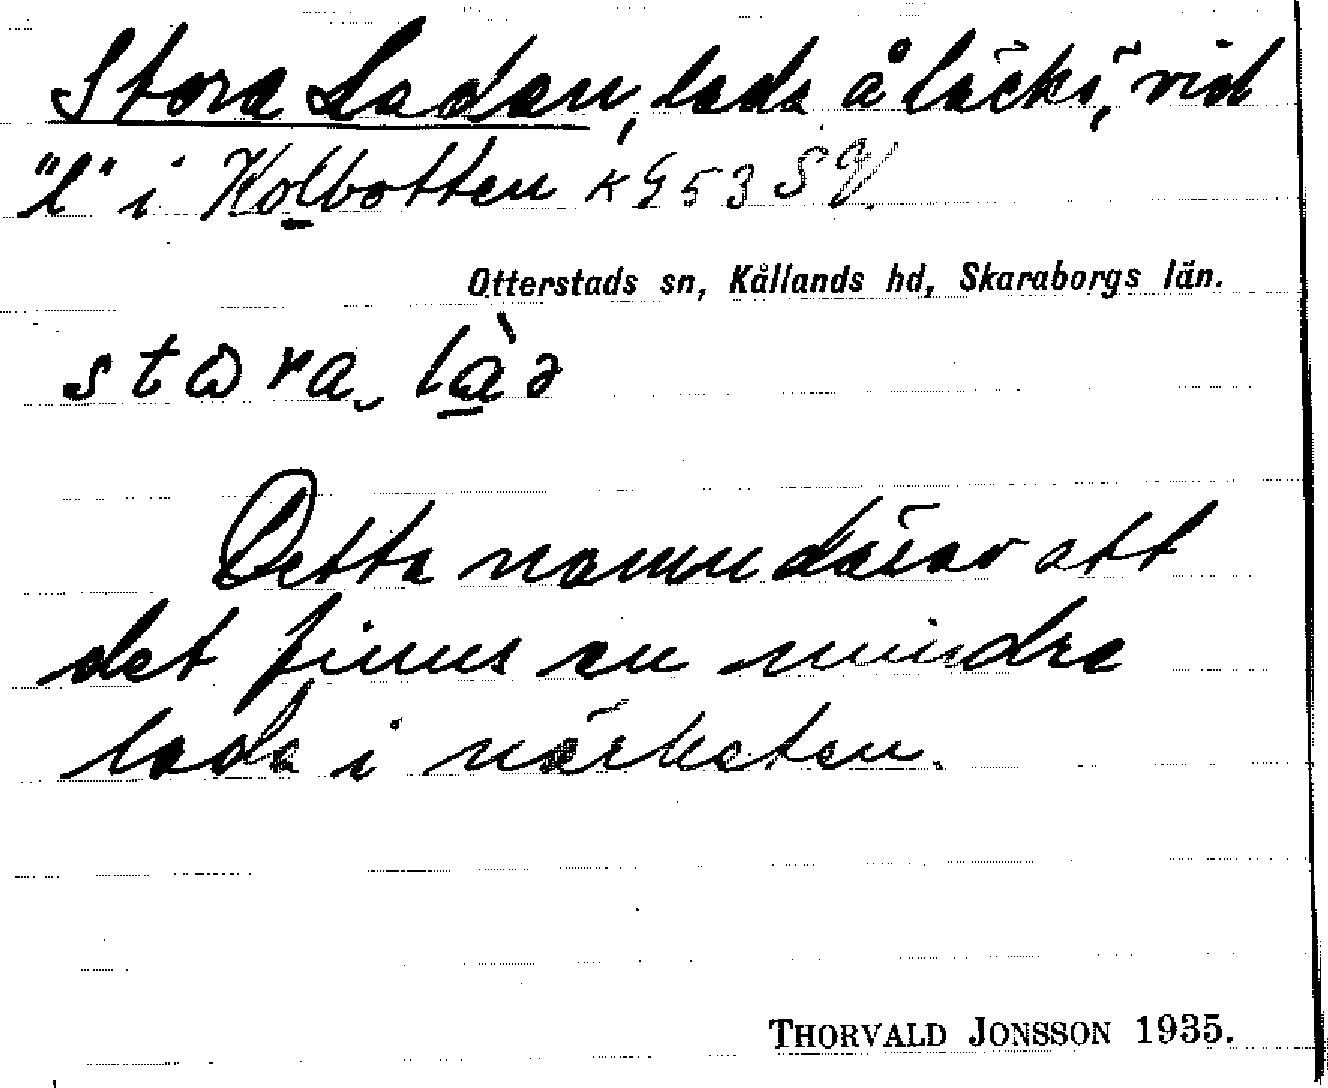 Stora Ladan, lada å Läckö, vid
"l" i Kolbotten K953 SV.
Otterstads sn, Kållands hd, Skaraborgs län.
stωra làə
Detta namn därav att
det finns en mindre
lada i närheten.
THORVALD JONSSON 1935.